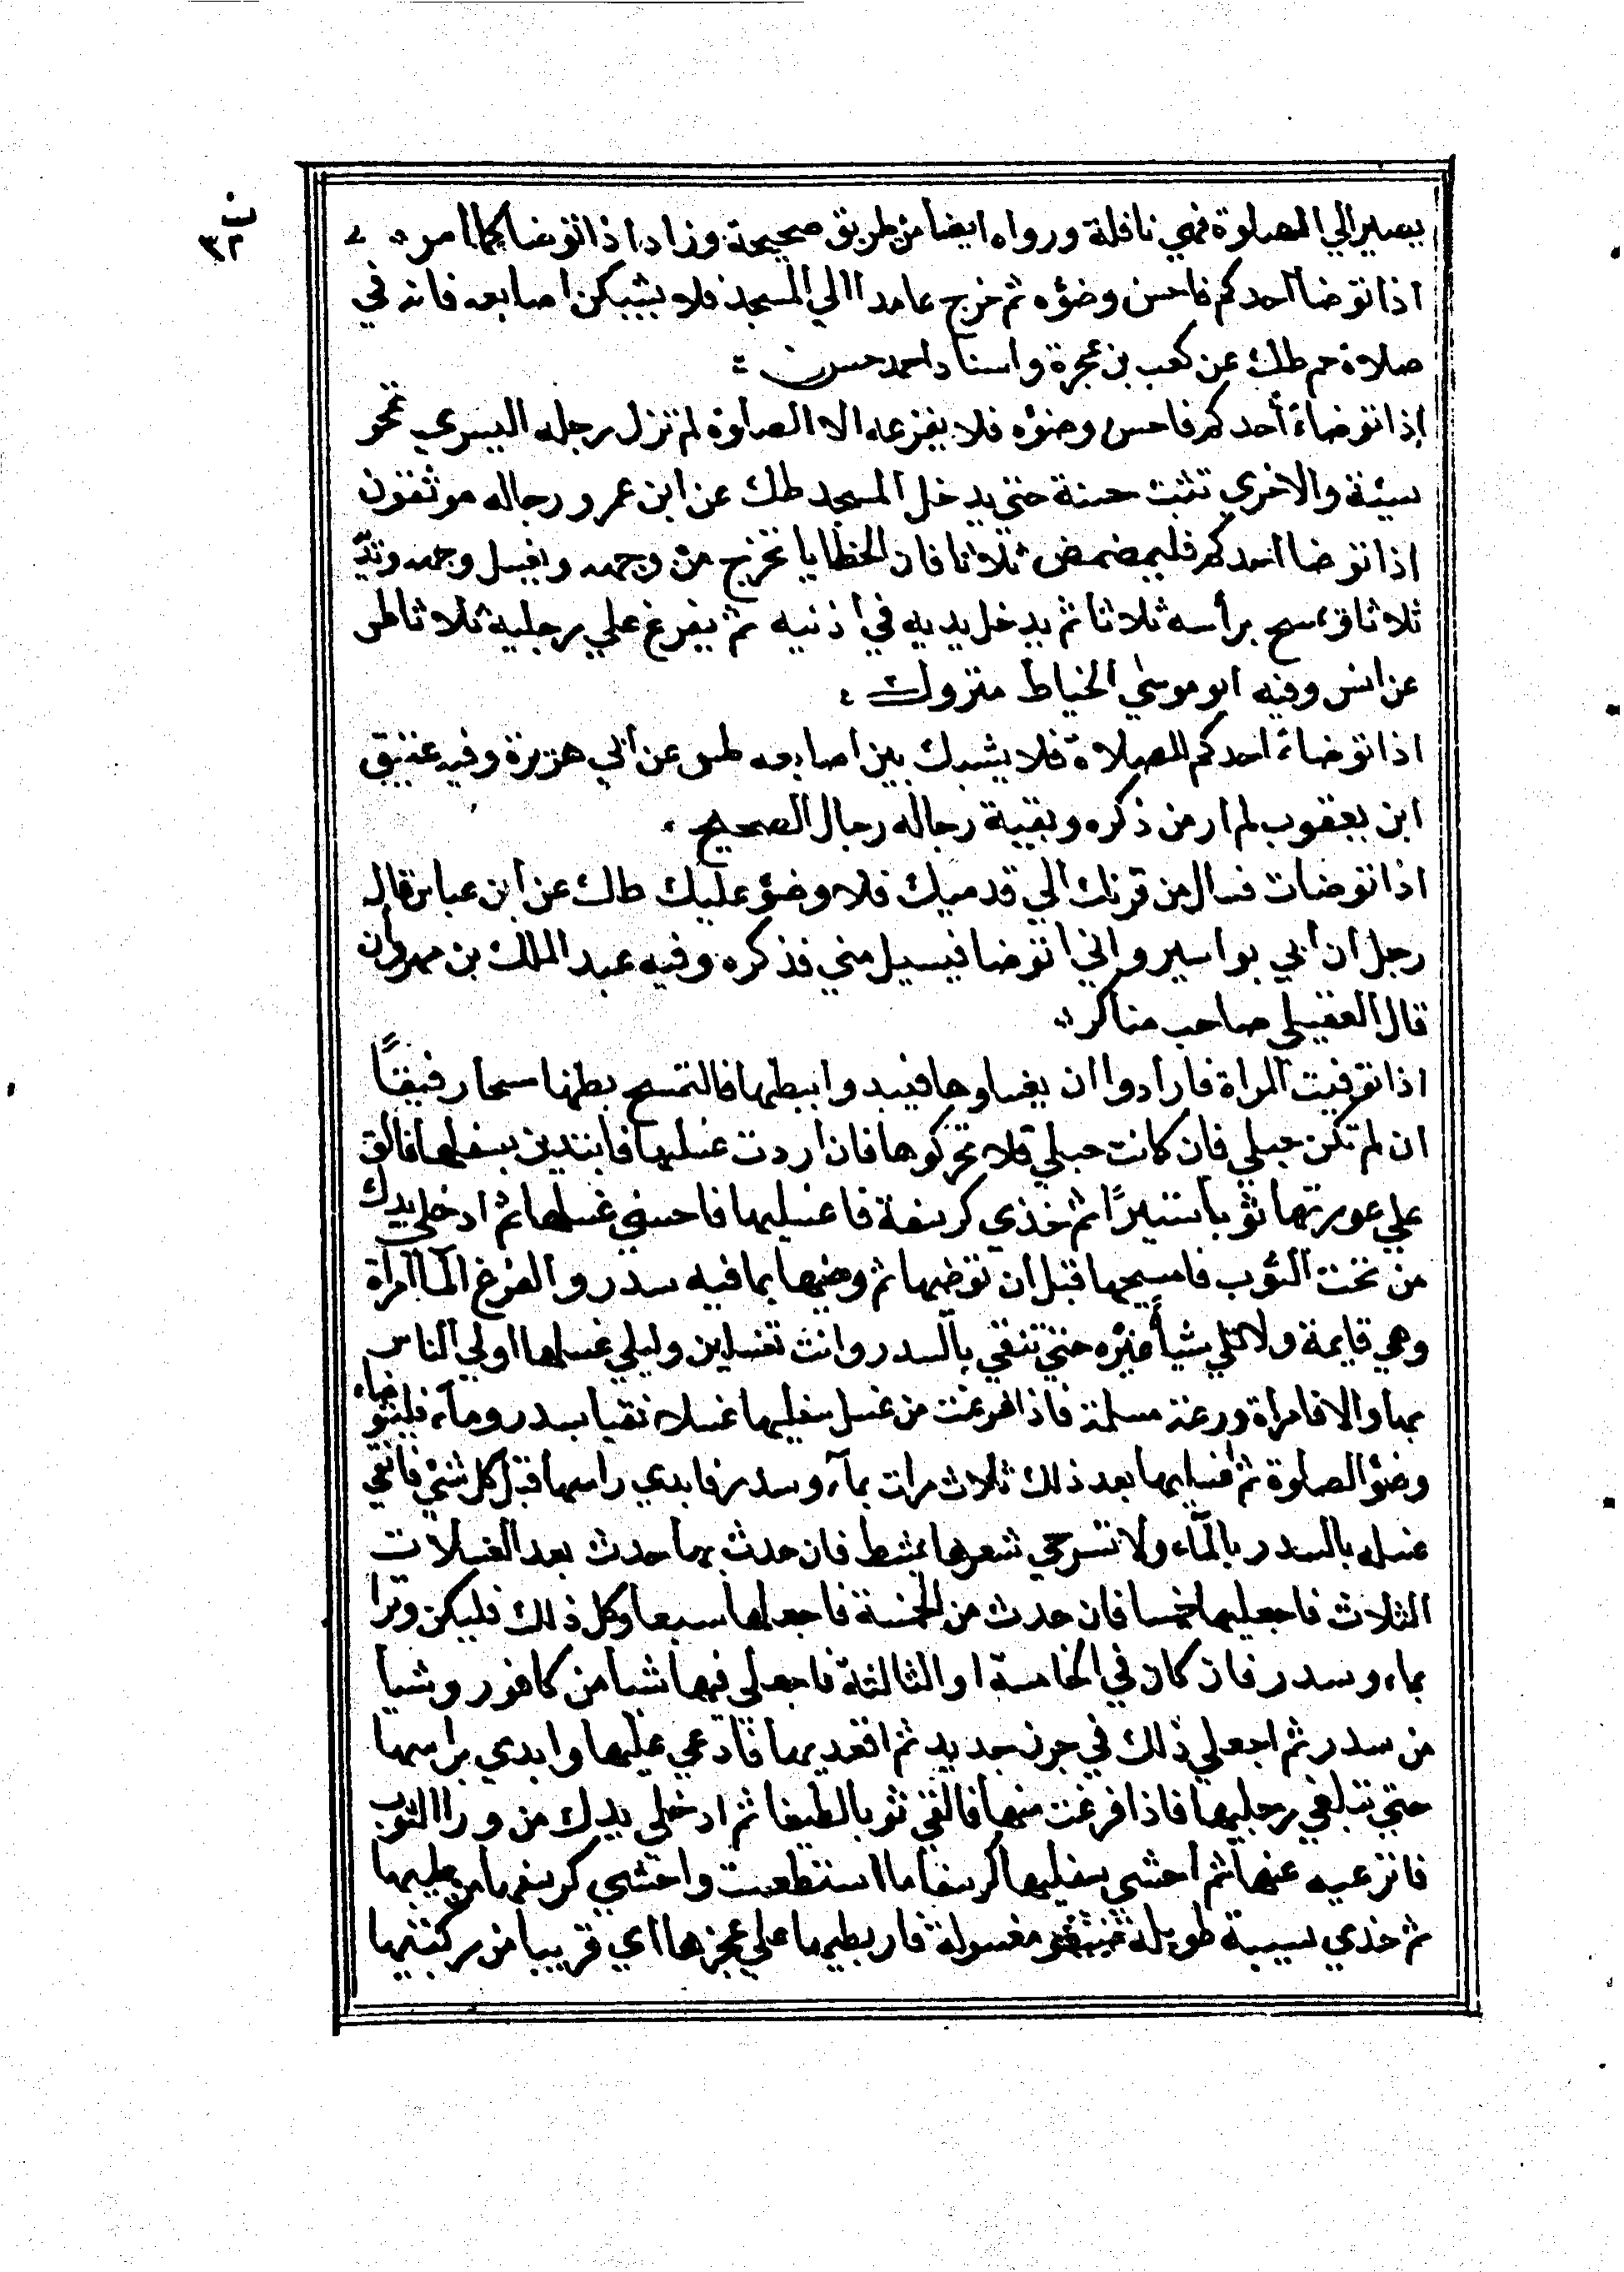 ت
٣٢
يصير الي الصلوة فهي نافلة ورواه ايضا من طريق صحيحة وزاد اذا توضا كما امر
اذا توضا احدكم فاحسن وضؤه ثم خرج عامدا الي المسجد فلا يشبكن اصابعه فانه في
صلاة حم طك عن كعب بن عجرة واسناد احمد حسن
إذا توضاء أحدكم فاحسن وضؤه فلا يفزعه الا الصلوة لم تزل رجله اليسري تمحو
سيئة والاخري تثبت حسنة حتي يدخل المسجد طك عن ابن عمر ورجاله موثقون
اذا توضا احدكم فليمضمض ثلاثا فان الخطايا تخرج من وجهه ويغسل وجهه ويديه
ثلاثا ويمسح برأسه ثلاثا ثم يدخل يديه في اذنيه ثم يفرغ علي رجليه ثلاثا طس
عن انس وفيه ابو موسي الخياط متروك
اذا توضاء احدكم للصلاة فلا يشبك بين اصابعه طس عن ابي هريرة وفيه عتيق
ابن يعقوب لم ار من ذكره وبقية رجاله رجال الصحيح
اذا توضات فسال من قرنك الي قدميك فلا وضؤ عليك طك عن ابن عباس قال
رجل ان لي بواسير واني اتوضا فيسيل مني فذكره وفيه عبد الملك بن مهران
قال العقيلي صاحب مناكر
اذا توفيت المراة فارادوا ان يغسلوها فيبدوا ببطنها فالتمسح بطنها مسحا رفيقًا
ان لم تكن حبلي فان كانت حبلي فلا تحركوها فان اردت غسليها فابتدين بسفليها فالق
علي عورتها ثوبا ستيرًا ثم خذي كرسفة فاغسليها فاحسني غسلها ثم ادخلي يدك
من تحت الثوب فامسحيها قبل ان توضيها ثم وضيها بما فيه سدر والفرغ الما امراة
وهي قايمة ولا تلي شيأ غيره حتي تنقي بالسدر وانت تغسلين وليلي غسلها اولي الناس
بها والا فامراة ورعة مسلمة فاذا فرغت من غسل سفليها غسلا نقيا بسدر وماء فليتوضاء
وضؤ الصلوة ثم اغسليها بعد ذلك ثلاث مرات بماء وسدر فابدي راسها قبل كل شئ فانقي
غسله بالسدر بالماء ولا تسرحي شعرها بمشط فان حدث بها حدث بعد الغسلات
الثلاث فاجعليها خمسا فان حدث من الخمسة فاجعلها سبعا وكل ذلك فليكن وترا
بماء وسدر فان كان في الخامسة او الثالثة فاجعلي فيها شيأ من كافور وشيأ
من سدر ثم اجعلي ذلك في جرز جديد ثم اقعديها فادعي عليها وابدي براسها
حتي تبلغي رجليها فاذا فرغت منها فالقي ثوبا لطيفا ثم ادخلي يدك من ورا الثوب
فانزعيه عنها ثم احشي سفليها كرسفا ما استطعت واحشي كرسفها من عليها
ثم خذي سبيبة طويلة مغسولة فاربطيها علي عجزها اي قريبا من ركبتيها